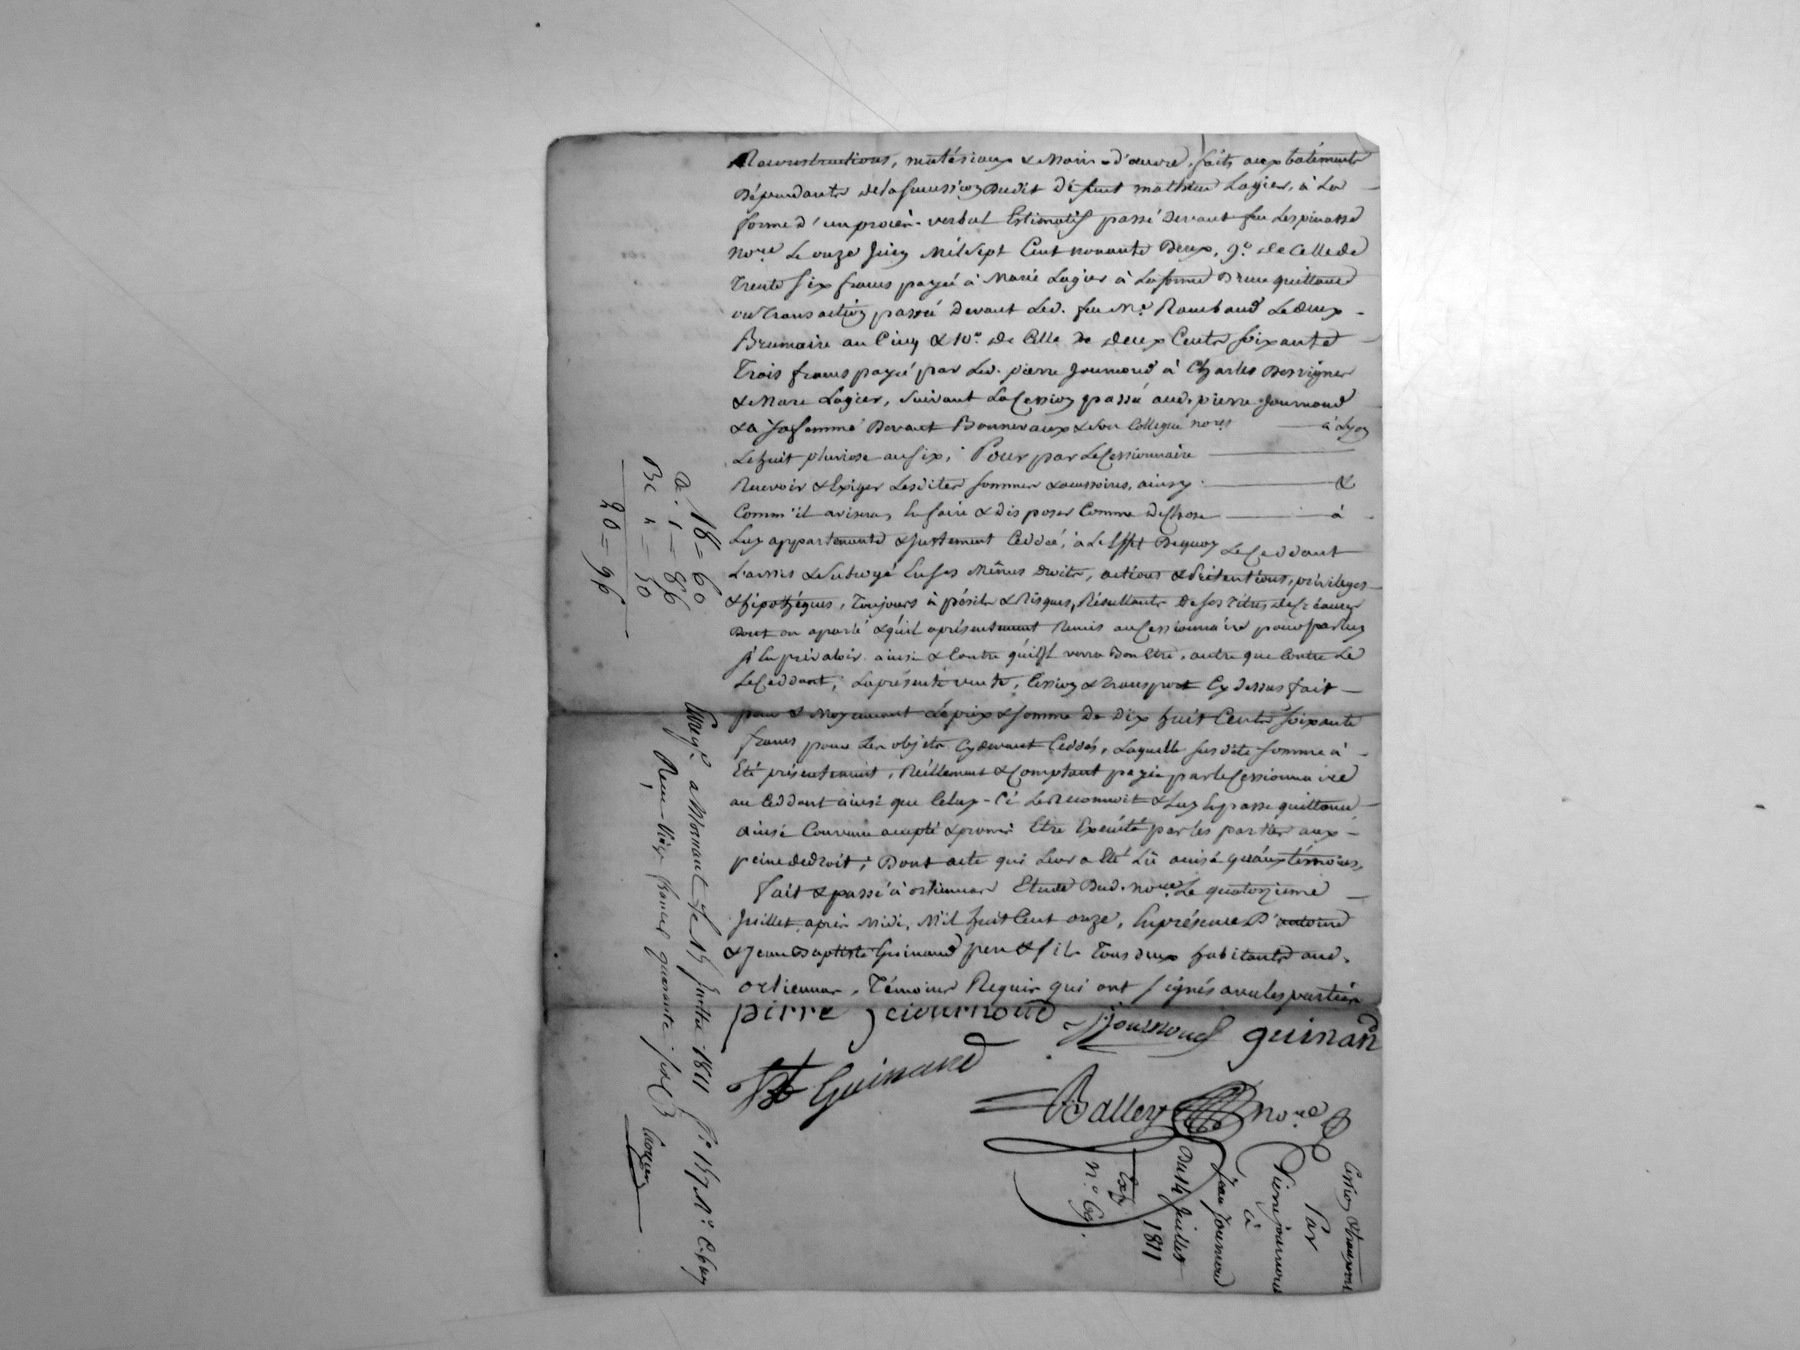 Reconstructions, matériaux & Main-d'œuvre, faits aux batiments
Dépendants de la succession dudit défunt mathieu Lagier, à La
forme d'un procèr-verbal Estimatif passé devant feu Lespinasse
nore Le onze Juin Mil Sept Cent nonante Deux, 9o. de Celle de
Trente Six francs payée à Marie Lagier à La forme D'une quittance
ou Transaction passée devant Led. feu Me. Raimbaud Le deux
Brumaire an Cinq & 10o. de Celle de deux Cents soixante
Trois francs payée par Led. pierre Journoud à Charles Desvignes
& Marie Lagier, Suivant La Cession passée aud. pierre Journoud
& à Sa femme Devant Bonnevaux & Son Collegue nores à Lyon
Le huit pluviose an six, Pour par Le Cessionnaire
Recevoir & Exiger Lesdites sommes & accessoires, ainsy &
Comm'il avisera, En faire & disposer Comme de Chose à
Luy appartenante & justement Cedée, à L'Effet Dequoy Le Ceddant
L'a mis & Subrogé En Ses Mêmes Droits, actions & Prétentions, privileges
& hipothéques, Toujours à périls & Risques, Résultants de ses Titres de Créances
Dont on a parlé & qu'il a présentement Remis au Cessionnaire pour par Luy
s'En prévaloir ainsi & Contre qu'il verra Bon Etre, autre que Contre Le
Le Ceddant; La présente vente, Cession & Transport Cy dessus fait
pour & Moyennant Le prix & somme de Dix huit Cents soixante
francs pour Les objets Cy devant Ceddés, Laquelle susdite somme à
Eté présentement, Réellement & Comptant payée par Le Cessionnaire
au Ceddant ainsi que Celuy-Ci Le Reconnoit & Luy En passe quittance
ainsi Convenu accepté & promis Etre Exécuté par Les parties aux
peine de droit; Dont acte qui Leur a Eté Lu ainsi qu'aux témoins,
Fait & passé à orlienas Etude Dud. nore Le quatorzieme
Juillet après Midi, Mil huit Cent onze, En présence D'antoine
& Jean Baptiste Guinand pere & fils Tous deux habitants aud.
orlienas, Témoins Requis qui ont signés avec Les parties
pirre Jeiournoud Journoud guinand
JB Guinand
Balley nore
Cession & transport
Par
Pierre journoud
à
Jean Journoud
Du 14 Juillet
1811
Exp.
no. 69.
Enregé. a Mornant le 15 Juillet 1811 fo. 157
Reçu - Vingt francs quarante-six Ces
D. 18 = 60
1 = 86
50
20 = 96